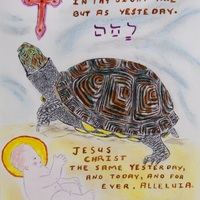 IN THY SIGHT ARE
BUT AS YESTEDAY.
JESUS
CHRIST
THE SAME YESTERDAY,
AND TODAY, AND FOR
EVER. ALLELUIA.